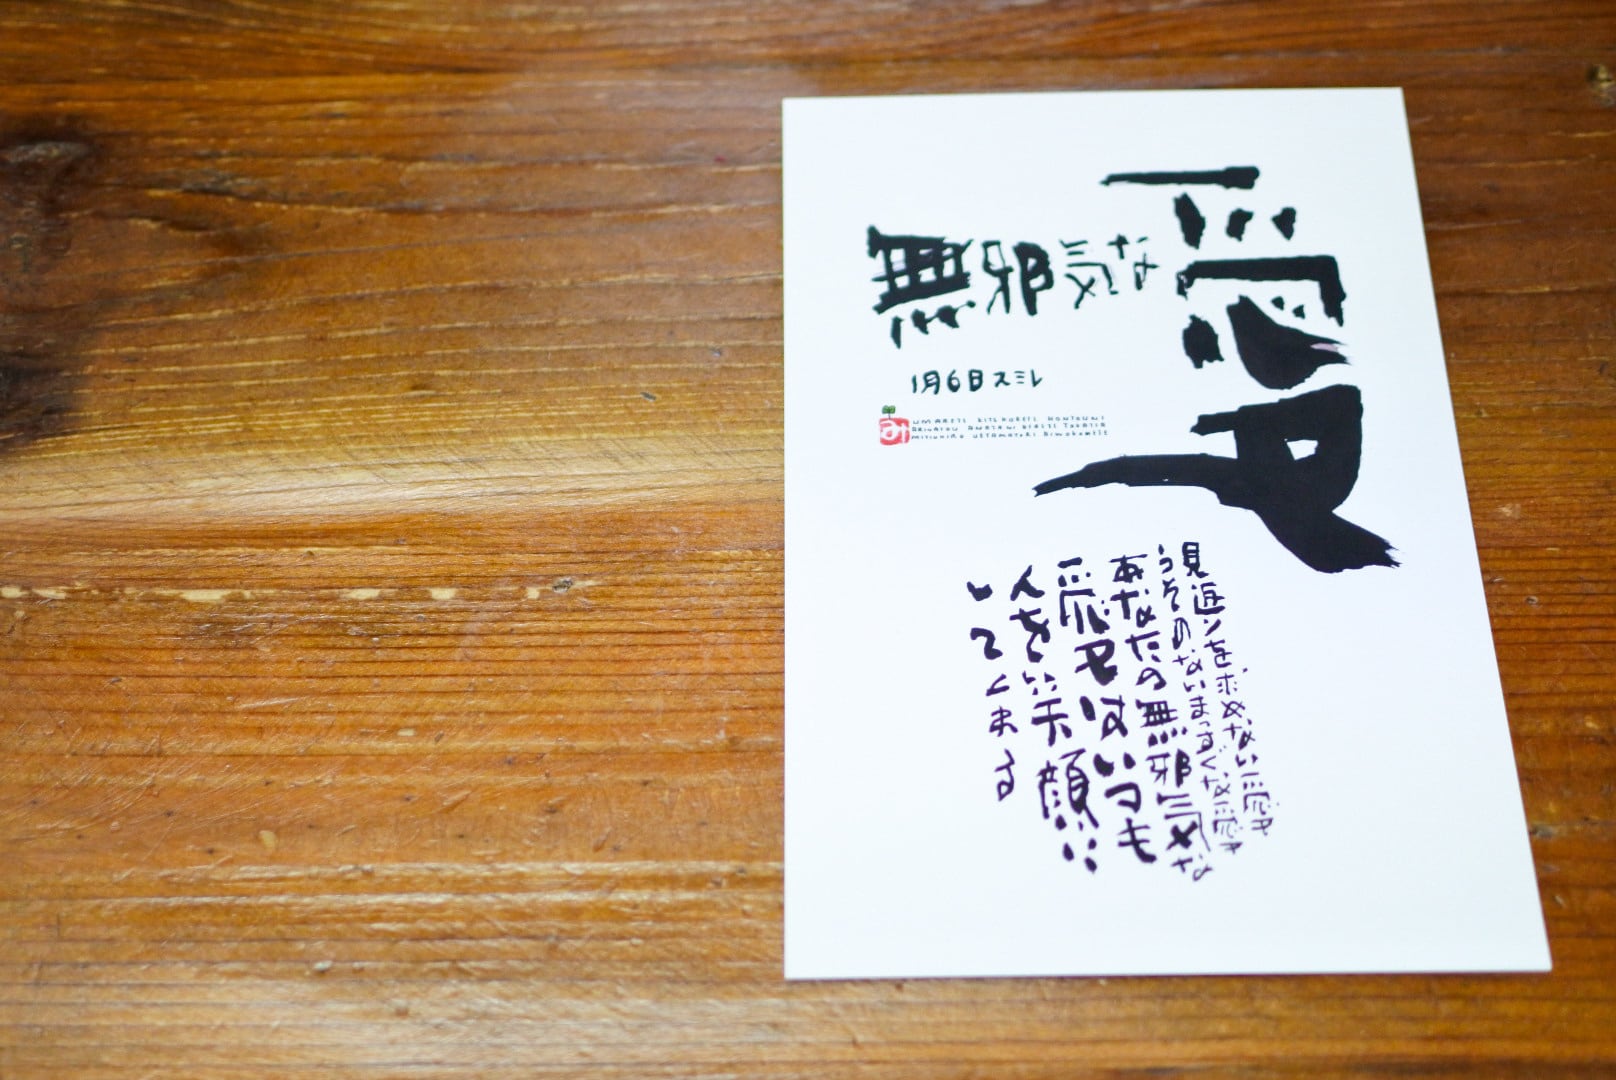 無邪気な
愛
1月6日スミレ
み
UMARETE KITE KURETE HONTOUNI
ARIGATOU ANATANI DEAETE
MITIUHIRO
見返りを求めない愛
うそのないまっすぐな愛
あなたの無邪気な
愛はいつも
人を笑顔に
してくれる